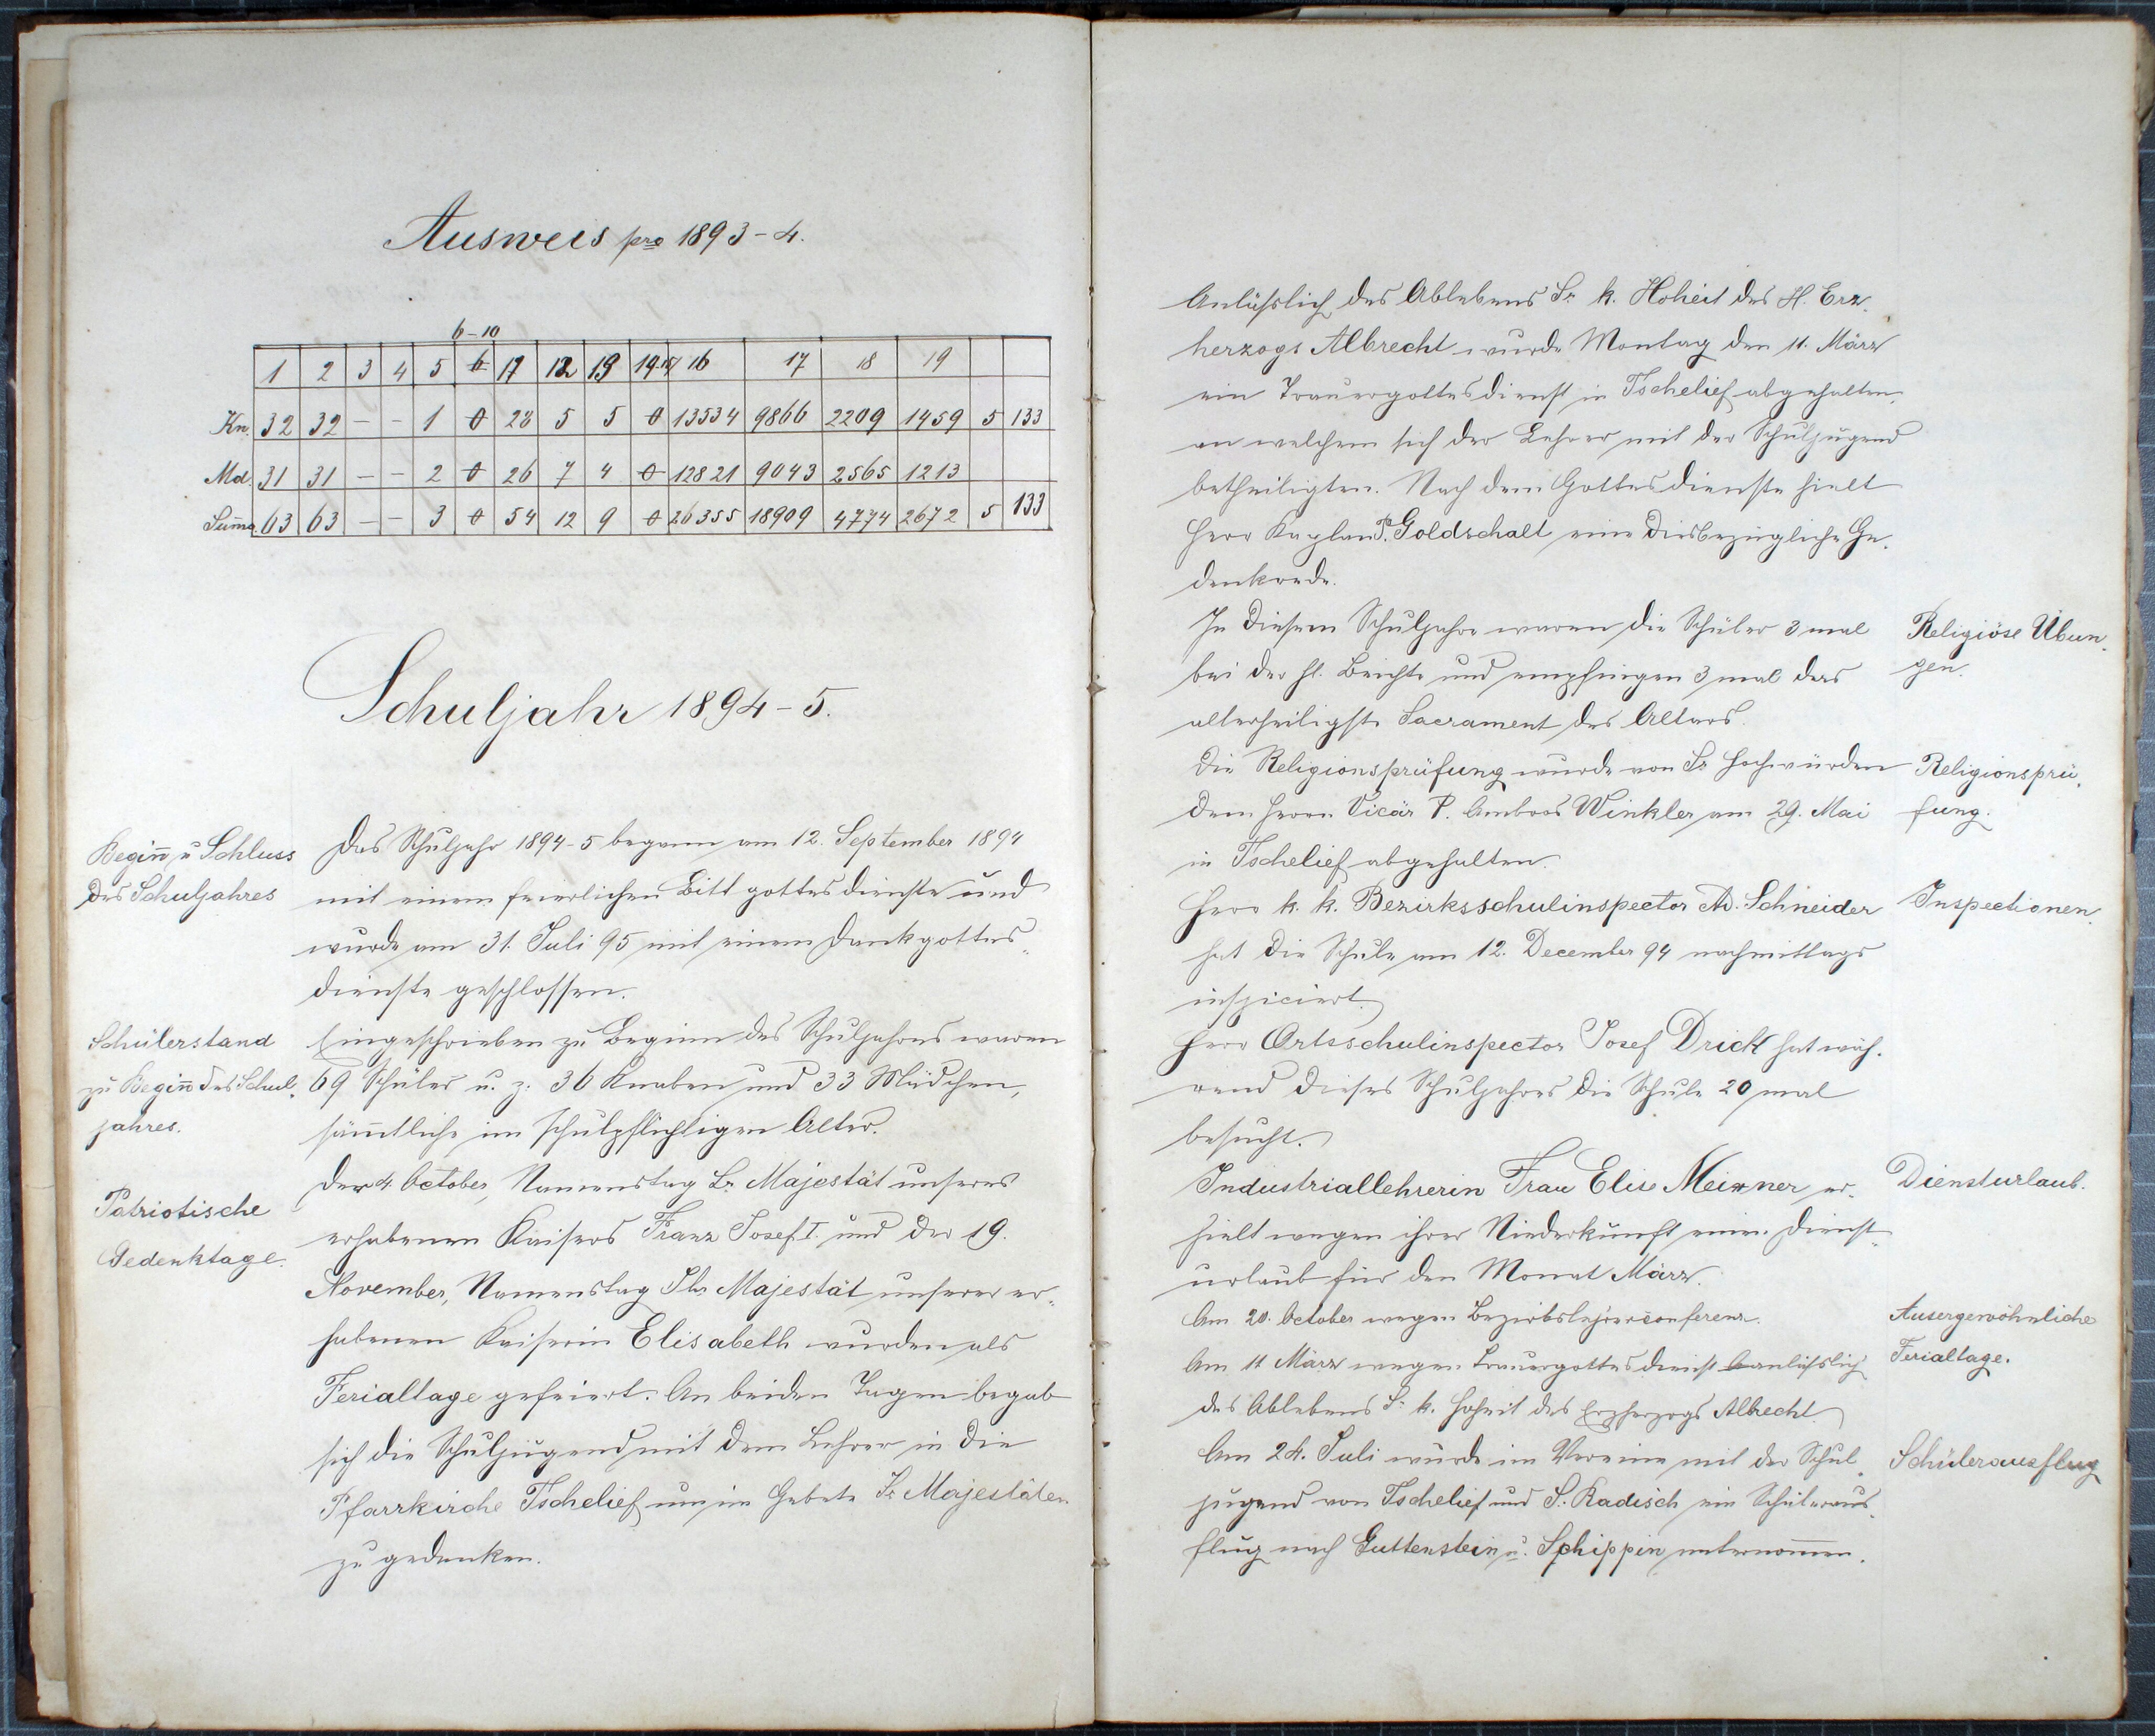 Ausweis pro 1893-4.
6-10
1 2 3 4 5 6 17 12 19 14.15 16 17 18 19
Kn. 32 32 - - 1 0 28 5 5 0 13534 9866 2209 1459 5 133
Md. 31 31 - - 2 0 26 7 4 0 12821 9043 2565 1213
Sum̄a. 63 63 - - 3 0 54 12 9 0 26355 18909 4774 2672 5 133
Schuljahr 1894-5.
Begin̄ u Schluss
des Schuljahres
Das Schuljahr 1894-5 begann am 12. September 1894
mit einem feierlichen Bittgottesdienste und
wurde am 31. Juli 95 mit einem Dankgottes„
dienste geschlossen.
Schülerstand
zu Begin̄ des Schul„
jahres.
Eingeschrieben zu Beginn des Schuljahres waren
69 Schüler u. z. 36 Knaben und 33 Mädchen,
säm̄tliche im schulpflichtigen Alter.
Patriotische
Gedenktage.
Der 4. October, Namenstag Sr. Majestät unseres
erhabenen Kaisers Franz Josef I. und der 19.
November, Namenstag Ihr. Majestät unserer er„
habenen Kaiserin Elisabeth wurden als
Ferialtage gefeiert. An beiden Tagen begab
sich die Schuljugend mit dem Lehrer in die
Pfarrkirche Tschelief um im Gebete Sr Majestäten
zu gedenken.
Anlässlich des Ablebens Sr. k. Hoheit des H. Erz„
herzogs Albrecht wurde Montag den 11. März
ein Trauergottesdienst in Tschelief abgehalten,
an welchem sich der Lehrer mit der Schuljugend
betheiligten. Nach dem Gottesdienste hielt
Herr Kaplan P. Goldschalt eine diesbezügliche Ge„
denkrede.
In diesem Schuljahre waren die Schüler 3 mal
bei der hl. Beichte und empfingen 3 mal das
allerheiligste Sacrament des Altars.
Religiöse Übun„
gen.
Die Religionsprüfung wurde von Sr Hochwürden
dem Herrn Vicär P. Ambros Winkler am 29. Mai
in Tschelief abgehalten.
Religionsprü„
fung.
Herr k. k. Bezirksschulinspector Ad. Schneider
hat die Schule am 12. December 94 nachmittags
inspiciert.
Inspectionen.
Herr Ortsschulinspector Josef Drick hat wäh„
rend dieses Schuljahres die Schule 20 mal
besucht.
Industriallehrerin Frau Elise Meixner er„
hielt wegen ihrer Niederkunft einen Dienst„
urlaub für den Monat März.
Diensturlaub.
Am 20. October wegen Bezirkslehrerconferenz.
Am 11 März wegen Trauergottesdienst anlässlich
des Ablebens Sr. k. Hoheit des Erzherzogs Albrecht.
Ausergewöhnliche
Ferialtage.
Am 24. Juli wurde im Vereine mit der Schul„
jugend von Tschelief und S. Radisch ein Schüleraus„
flug nach Guttenstein u. Schippin unternom̄en.
Schülerausflug